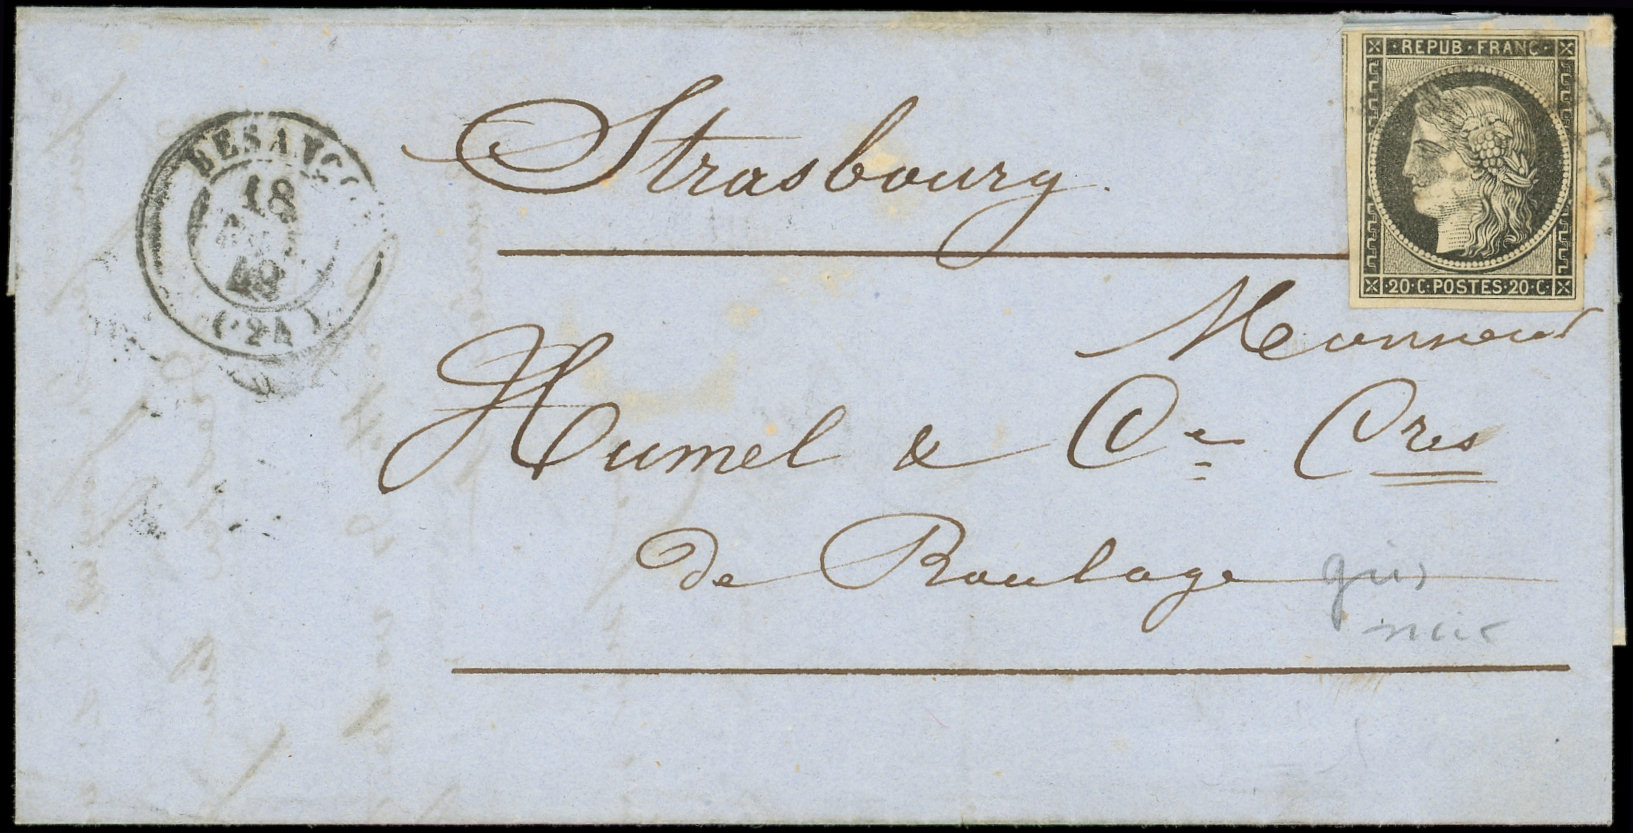 REPUB · FRANC ·
20 · C · POSTES · 20 · C ·
BESANÇO
18
49
(24)
Strasbourg
Monsieur
Humel & Cie Cres
de Roulage
gris
noir